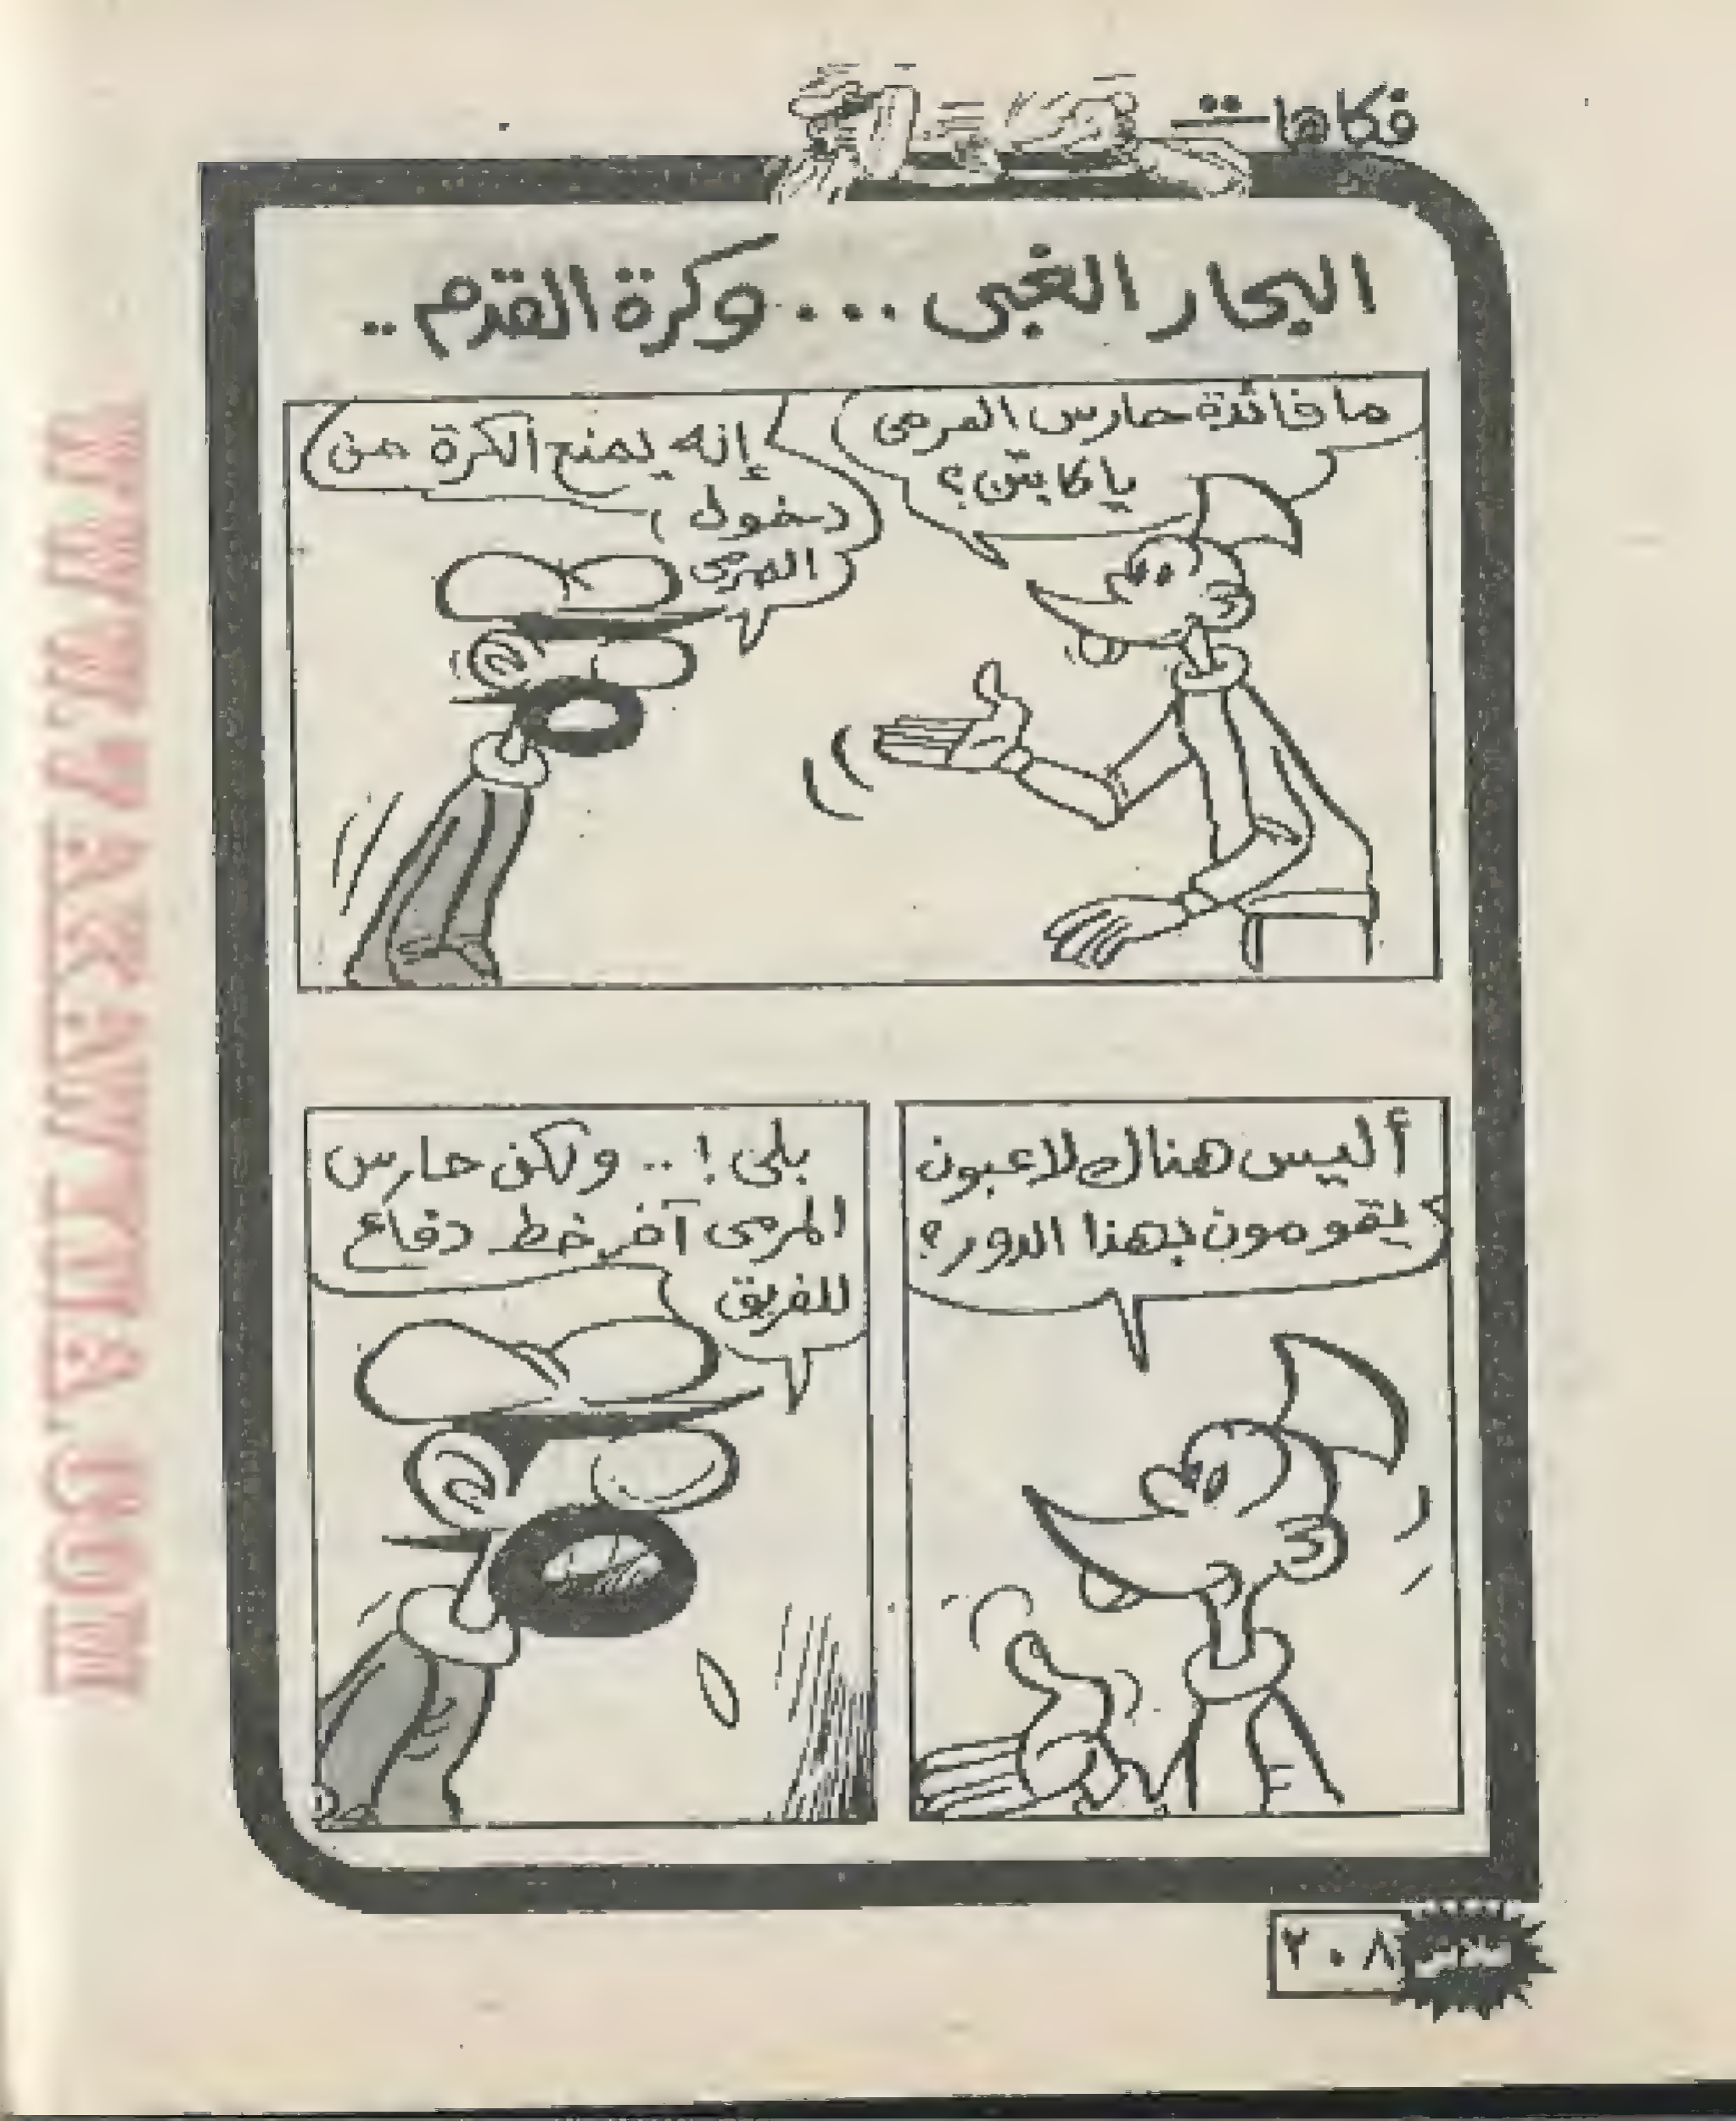 فكاهات
البحار الغبى ... وكرة القدم ..
ما فائدة حارس المرمى
يا كابتن؟
إنه يمنع الكرة من
دخول
المرمى
أليس هناك لاعبون
يقومون بهذا الدور؟
بلى! .. ولكن حارس
المرمى آخر خط دفاع
للفريق
٢٠٨